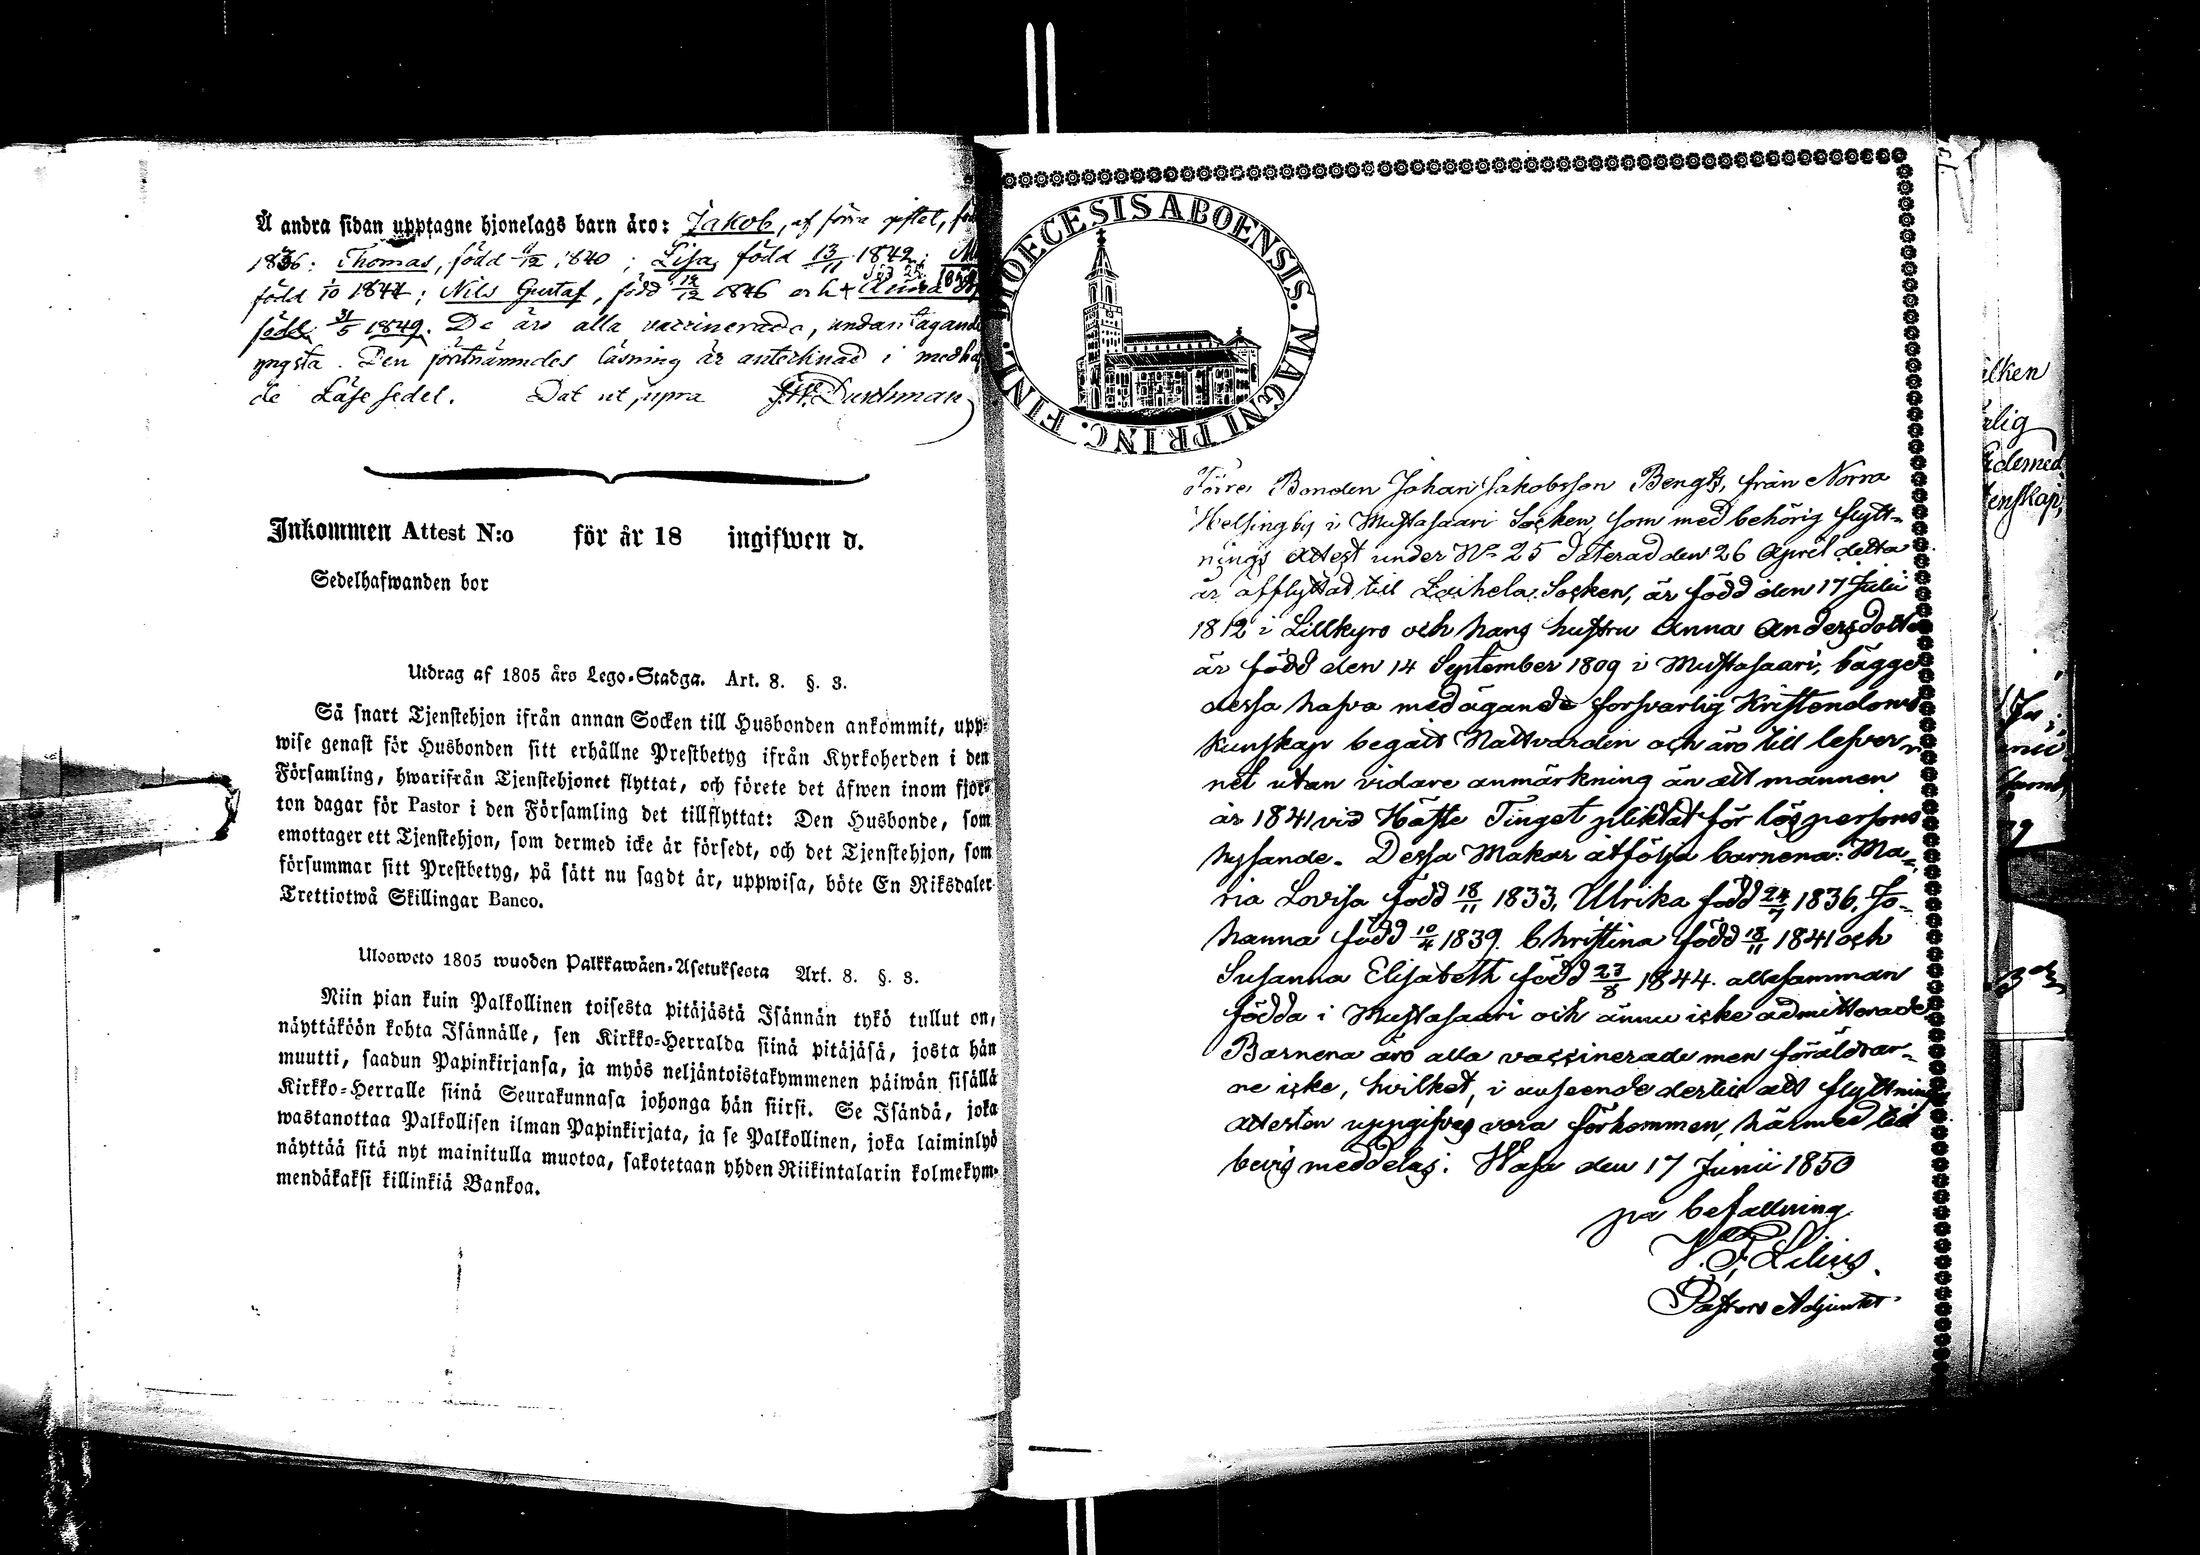 Å andra sidan upptagne hjonelags barn äro: Jakob, af förra giftet,
1836: Thomas, född 1840; Lisa, född 13/11 1842;
född 1/10 1844; Nils Gustaf, född 1846 och Anna
född 31/5 1849. De äro alla vaccinerade, undantagande
yngsta. Den förstnämndes läsning är antecknad i
de Läse sedel. Dat ut supra
Inkommen Attest N:o för år 18 ingifwen d.
Sedelhafwanden bor
Utdrag af 1805 års Lego-Stadga. Art. 8. §. 3.
Så snart Tjenstehjon ifrån annan Socken till Husbonden ankommit, upp-
wise genast för Husbonden sitt erhållne Prestbetyg ifrån Kyrkoherden i den
Församling, hwarifrån Tjenstehjonet flyttat, och förete det äfwen inom fjor-
ton dagar för Pastor i den Församling det tillflyttat: Den Husbonde, som
emottager ett Tjenstehjon, som dermed icke är försedt, och det Tjenstehjon, som
försummar sitt Prestbetyg, på sätt nu sagdt är, uppwisa, böte En Riksdaler
Trettiotwå Skillingar Banco.
Ulosweto 1805 wuoden Palkkawäen-Asetuksesta Art. 8. §. 3.
Niin pian kuin Palkollinen toisesta pitäjästä Isännän tykö tullut on,
näyttäköön kohta Isännälle, sen Kirkko-Herralda siinä pitäjäsä, josta hän
muutti, saadun Papinkirjansa, ja myös neljäntoistakymmenen päiwän sisällä
Kirkko-Herralle siinä Seurakunnasa johonga hän siirsi. Se Isändä, joka
wastanottaa Palkollisen ilman Papinkirjata, ja se Palkollinen, joka laiminlyö
näyttää sitä nyt mainitulla muotoa, sakotetaan yhden Riikintalarin kolmekym-
mendäkaksi killinkiä Bankoa.
DIOECESIS ABOENSIS. MAGNI PRINC. FINL.
Förre Bonden Johan Jakobsson Bengts, från Norra
Helsingby i Mustasaari Socken, som med behörig flytt-
nings Attest under No 25 daterad den 26 April detta
år afflyttat till Laihela Socken, är född den 17 Julii
1812 i Lillkyro och hans hustru Anna Andersdotter
är född den 14 September 1809 i Mustasaari; bägge
dessa hafva med ägande försvarlig Kristendoms
Kunskap begått Nattvarden och äro till lefver-
net utan vidare anmärkning än att mannen
år 1841 vid Höste Tinget pliktat för lös persons
hysande. Dessa Makar åtfölja barnena: Ma-
ria Lovisa född 18/11 1833, Ulrika född 24/7 1836, Jo-
hanna född 10/4 1839. Christina född 18/11 1841 och
Susanna Elisabeth född 27/8 1844. allesamman
födda i Mustasaari och ännu icke admitterade
Barnena äro alla vaccinerade men föräldrar-
ne icke, hvilket, i anseende dertill att flyttnings
attesten uppgifves vara förkommen, härmed till
bevis meddelas. Wasa den 17 Junii 1850
på befallning
V. F. Lilius.
Pastors Adjunkt